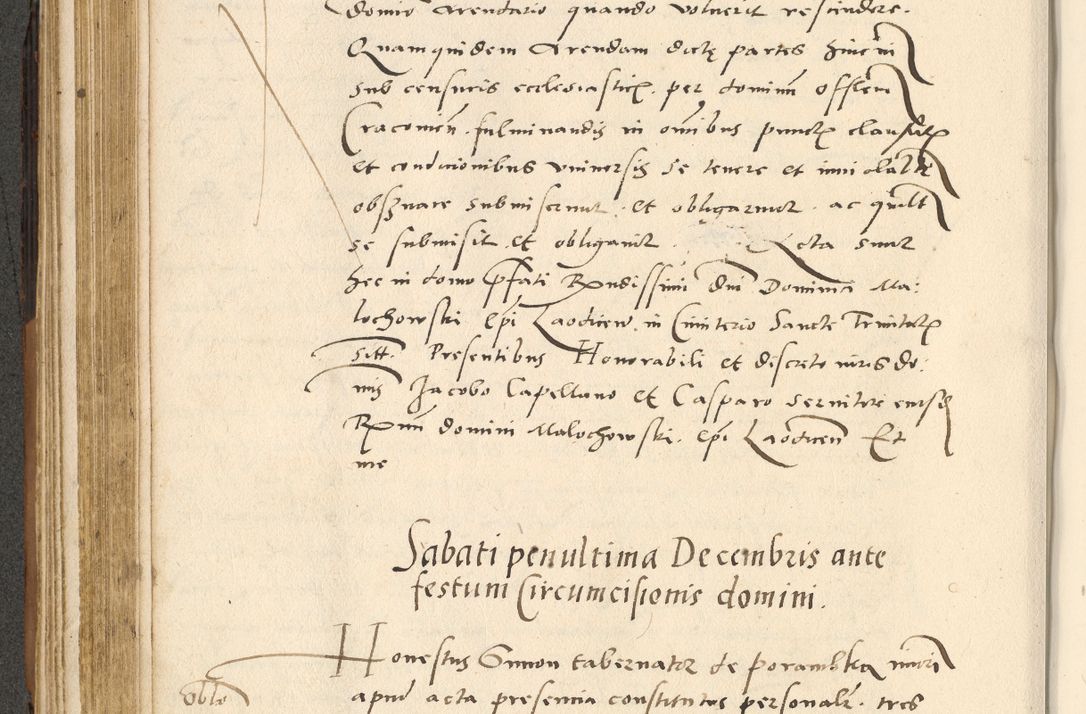 domino Arendario quando voluerit rescindere.
Quamquidem Arendam dictę partes hincin
sub censuris ecclesiasticis. per dominum Offlem
Cracovien. fulminandis in omibus punctis clausulis
et condicionibus universis se tenere et inviolabilr
observare submiserunt. et obligarunt. ac quilt
se submisit et obligavit. Acta sunt
hec in domo pfati Rvndissimi dni Dominici Ma:
lochowski Epi Laodicen. in Cimiterio Sancte Trinitatis
sitt. Presentibus Honorabili et discreto viris do:
nis Jacobo Capellano et Casparo servitore eiusd
Rvmi domini Malochowski. Epi Laodicen Et
me
Sabati penultima Decembris ante
festum Circumcisionis domini.
Honestus Simon tabernator de Porambka
oblo
apud acta presencia constitutus personalr. tres